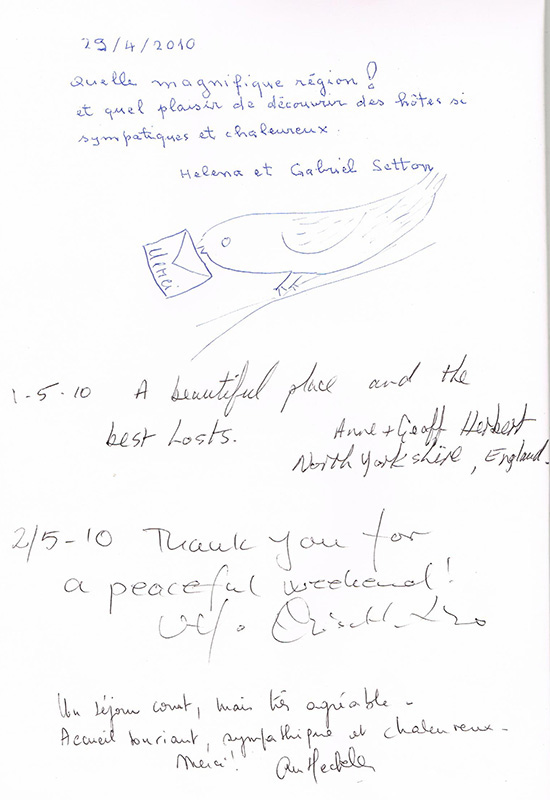 29/4/2010
Quelle magnifique région!
et quel plaisir de découvrir des hôtes si
sympatiques et chaleureux.
Helena et Gabriel Setton
Merci
1-5-10 A beautiful place and the
best hosts.
Anne + Geoff Herbert
North Yorkshire, England.
2/5-10 Thank you for
a peaceful weekend!
Un séjour court, mais très agréable -
Accueil souriant, sympathique et chaleureux -
Merci!